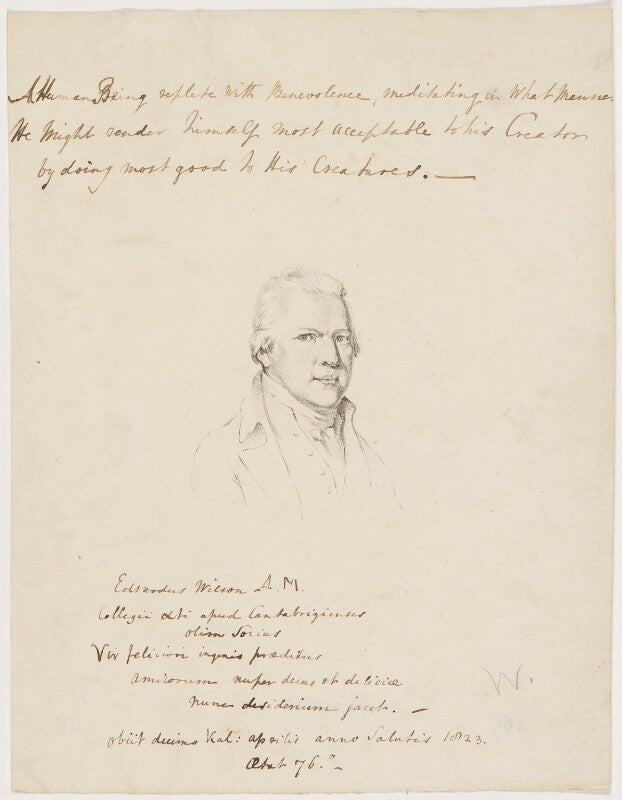 A Human Being replete with Benevolence, meditating in What Manner
He Might render himself most acceptable to his Creator
by doing most good to His Creatures. —
Edvardus Wilson A.M.
Collegii Xti apud Cantabrigienses
olim Socius
Vir feliciori ingenio præditus
amicorum nuper decus et deliciæ
nunc desiderium jacet. —
obiit decimo Kal: aprilis anno Salutis 1823.
Ætat 76.° -
W.